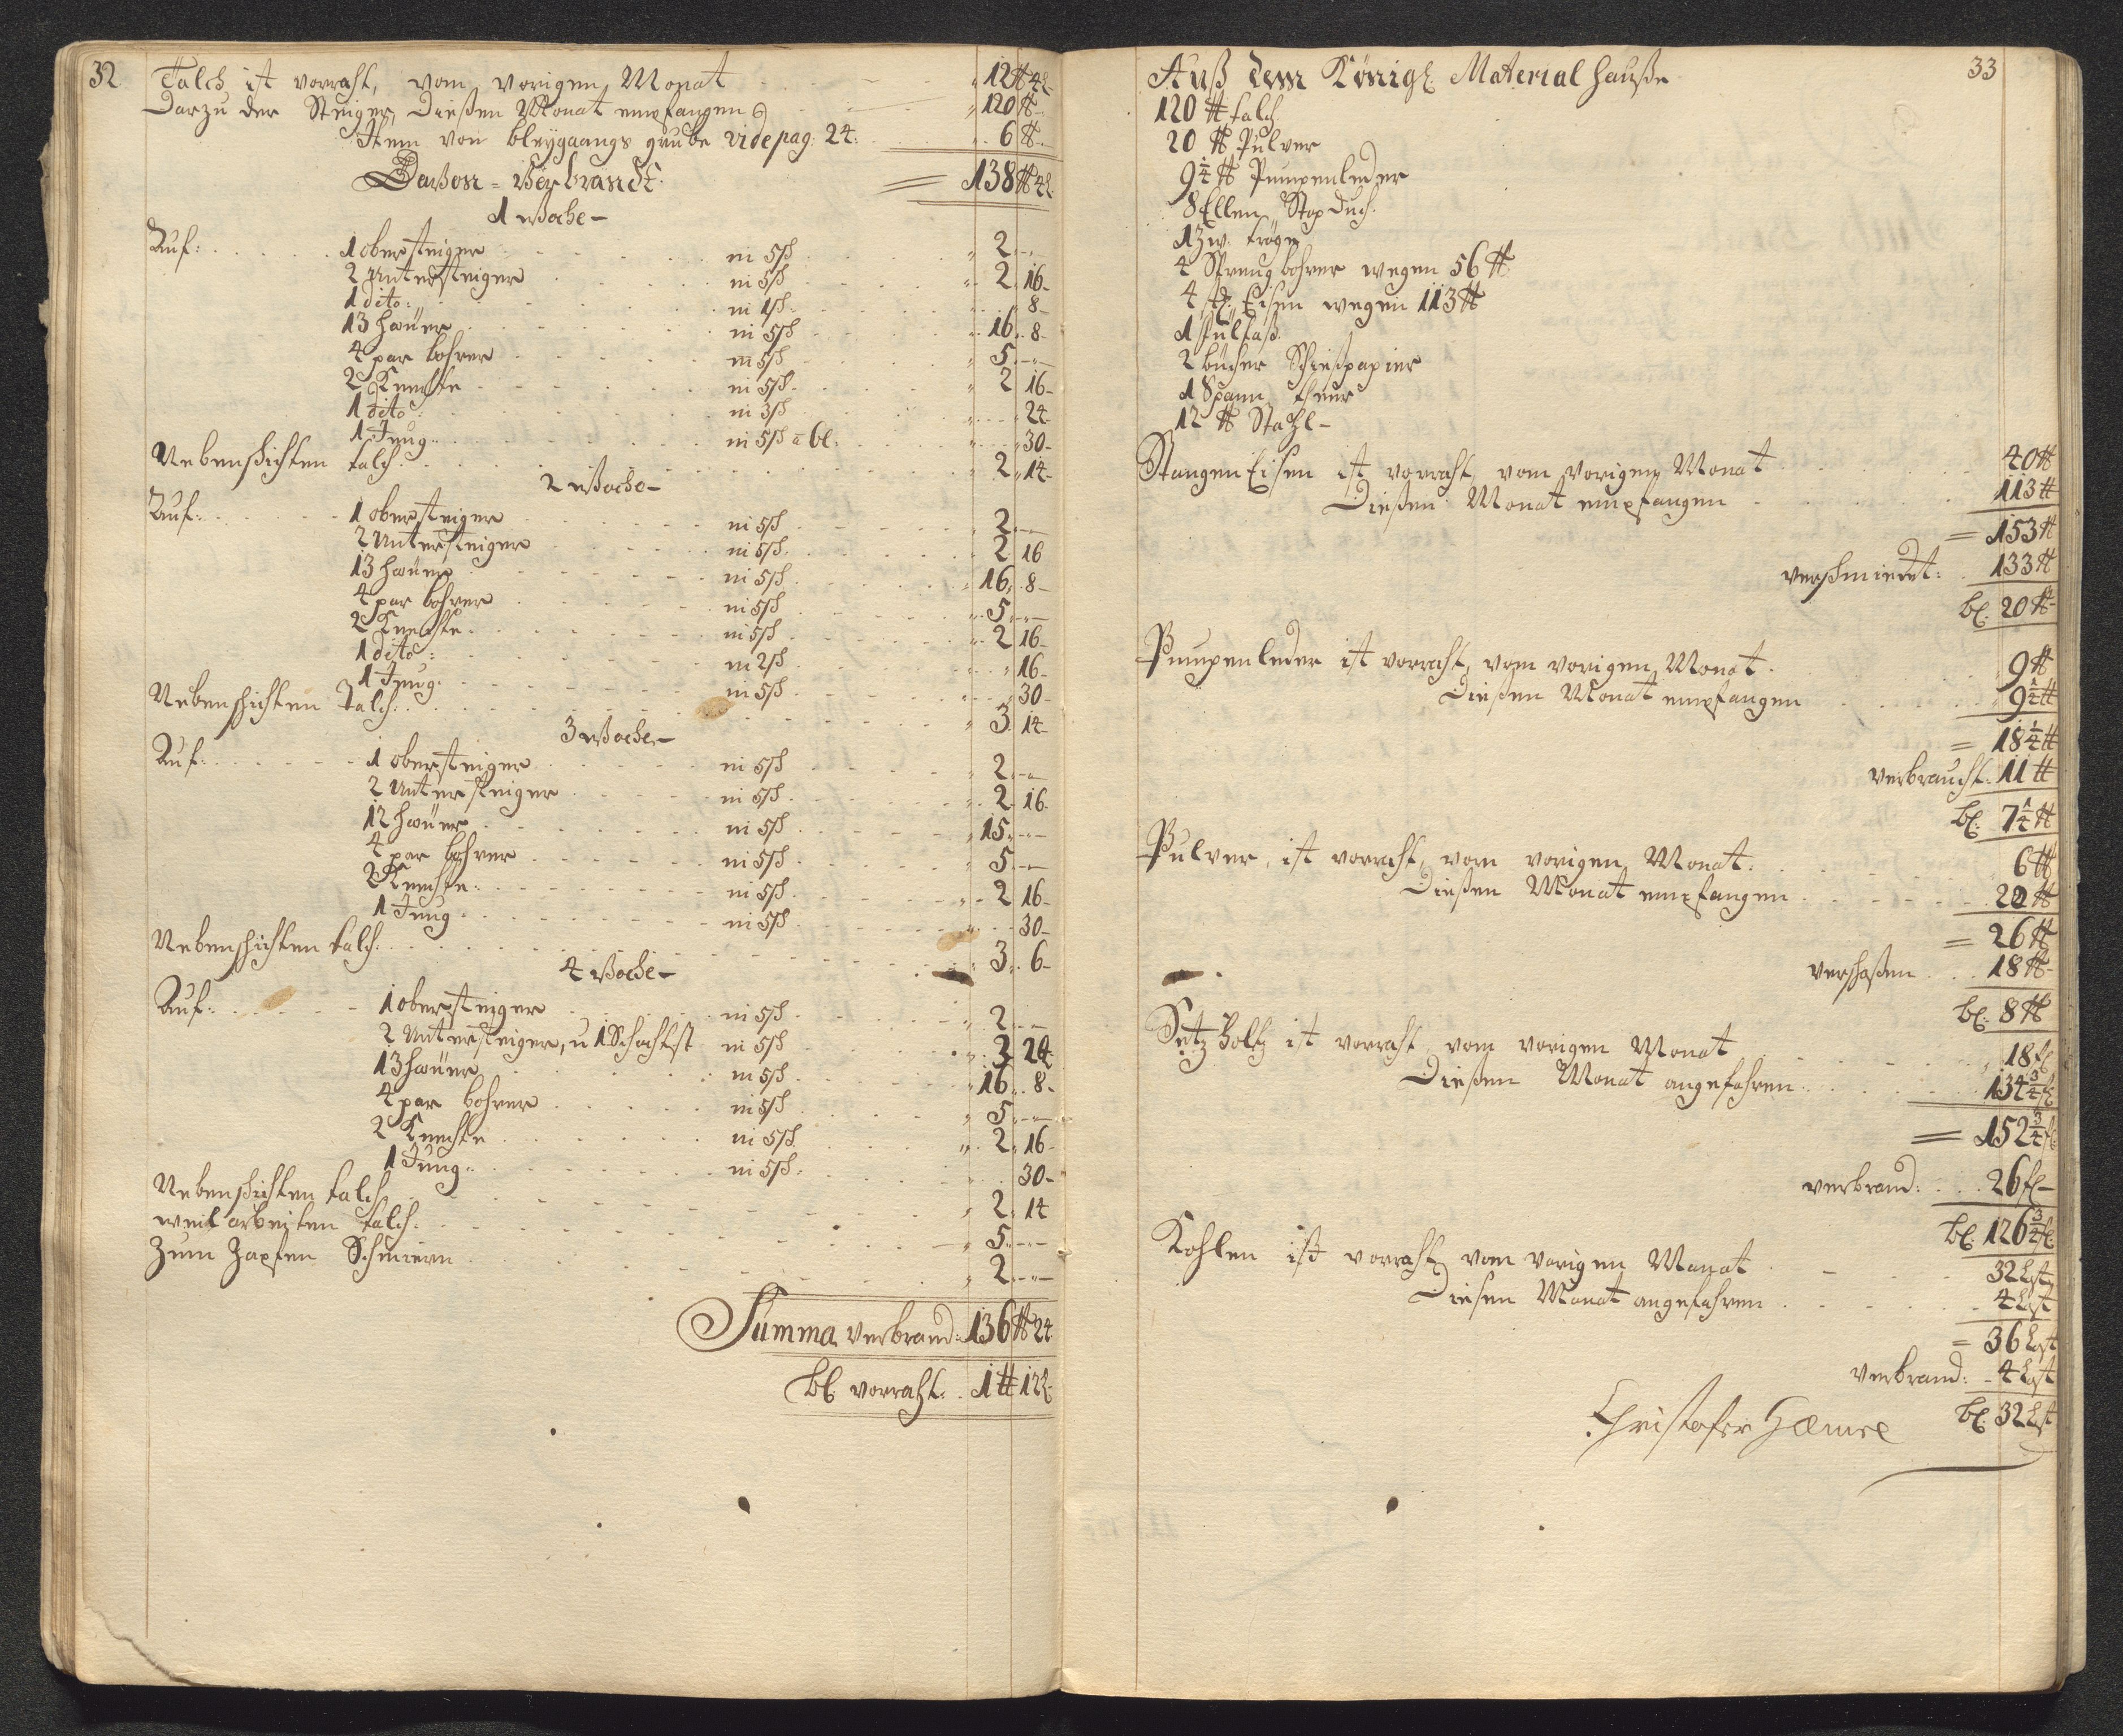 32
Talch ist vorraht, vom vorigen Monat 12 ℔ 4 l
Darzu der Steiger, Dießen Monat empfangen 120 ℔
Item von bleygaangs grube vide pag: 24: 6 ℔
Davon = Verbrandt = 138 ℔ 4 l
1 Woche
Auf: 1 obersteiger in 5 sch 2
2 Untersteiger in 5 sch 2 16
1 dito: in 1 sch 8
13 Heüer in 5 sch 16 8
4 par bohrer in 5 sch 5
2 Knechte in 5 sch 2 16
1 dito: in 3 sch 24
1 Jung in 5 sch a 6 l: 30
Nebenschichten talch 2 14
2 Woche
Auf: 1 obersteiger in 5 sch 2
2 Untersteiger in 5 sch 2 16
13 Heüer in 5 sch 16 8
4 par bohrer in 5 sch 5
2 Knechte in 5 sch 2 16
1 dito: in 2 sch 16
1 Jung in 5 sch 30
Nebenschichten Talch 3 14
3 Woche
Auf: 1 obersteiger in 5 sch 2
2 Untersteiger in 5 sch 2 16
12 Heüer in 5 sch 15
4 par bohrer in 5 sch 5
2 Knechte in 5 sch 2 16
1 Jung in 5 sch 30
Nebenschichten talch 3 6
4 Woche
Auf: 1 obersteiger in 5 sch 2
2 Untersteiger, u 1 Schachtst in 5 sch 3 24
13 Heüer in 5 sch 16 8
4 par bohrer in 5 sch 5
2 Knechte in 5 sch 2 16
1 Jung in 5 sch 30
Nebenschichten talch 2 14
weil arbeiten talch 5
Zum Zapfen Schmiern 2
Summa verbrand: 136 ℔ 24
bl vorraht: 1 ℔ 12 l
33
Auß dem Königl: Material Hauße
120 ℔ talch
20 ℔ Pulver
9¼ ℔ Pumpenleder
8 Ellen Stop duch
1 zw: tröge
4 Spreng bohrer wegen 56 ℔
4 st: Eisen wegen 113 ℔
1 Fülfaß
2 bücher Schiespapier
1 Spann theer
12 ℔ Stahl
Stangen Eisen ist vorraht, vom vorigen Monat 40 ℔
Dießen Monat empfangen 113 ℔
= 153 ℔
verschmiedet: 133 ℔
bl: 20 ℔
Pumpenleder ist vorraht, vom vorigen Monat 9 ℔
Dießen Monat empfangen 9¼ ℔
= 18¼ ℔
verbraucht: 11 ℔
bl: 7¼ ℔
Pulver, ist vorraht, vom vorigen Monat 6 ℔
Dießen Monat empfangen 20 ℔
= 26 ℔
verschoßen 18 ℔
bl: 8 ℔
Setz holtz ist vorraht vom vorigen Monat 18 fl
Dießen Monat angefahren 134¾ fl
= 152¾ fl
verbrand: 26 fl
bl: 126¾ fl
Kohlen ist vorraht, vom vorigen Monat 32 Lest
Diesen Monat angefahren 4 Lest
= 36 Lest
verbrand: 4 Lest
bl: 32 Lst
Christofer